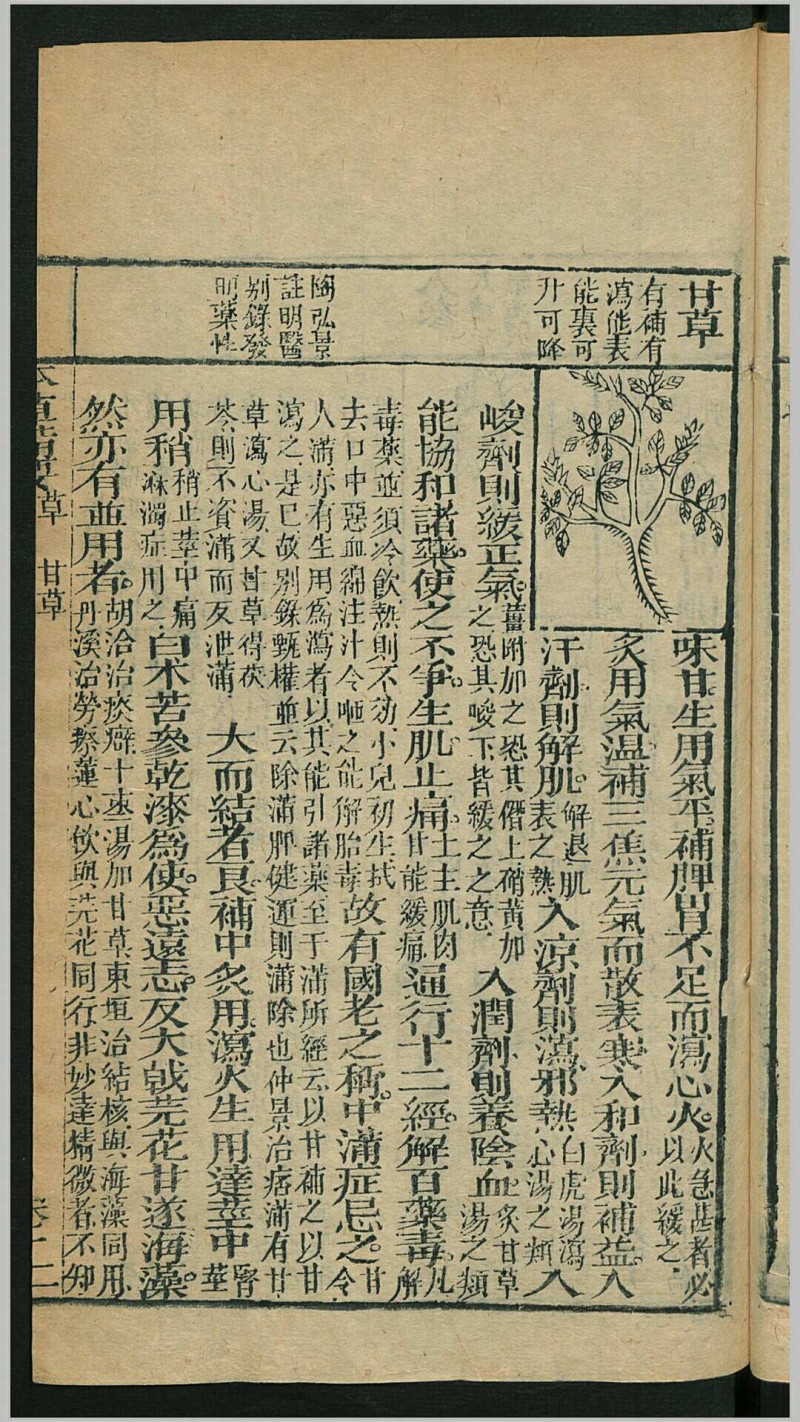 甘草
有補有
瀉能表
能裏可
升可降
陶弘景
註明醫
別錄發
明藥性
味甘生用氣平補脾胃不足而瀉心火火急甚者必以此緩之
炙用氣溫補三焦元氣而散表寒入和劑則補益入
汗劑則解肌解退肌表之熱入涼劑則瀉邪熱白虎湯瀉心湯之類入
峻劑則緩正氣薑附加之恐其僭上硝黃加之恐其峻下皆緩之之意入潤劑則養陰血炙甘草湯之類
能協和諸藥使之不爭生肌止痛土主肌肉甘能緩痛通行十二經解百藥毒凡解
毒藥並須冷飲熱則不効小兒初生拭去口中惡血綿注汁令咂之能解胎毒故有國老之稱中滿症忌之甘令
人滿亦有生用為瀉者以其能引諸藥至于滿所經云以甘補之以甘
瀉之是已故別錄甄權並云除滿脾健運則滿除也仲景治痞滿有甘
草瀉心湯又甘草得茯苓則不資滿而反泄滿大而結者良補中炙用瀉火生用達莖中腎莖
用稍稍止莖中痛淋濁症用之白朮苦參乾漆為使惡遠志反大戟芫花甘遂海藻
然亦有並用者胡洽治痰癖十棗湯加甘草東垣治結核與海藻同用
丹溪治勞瘵蓮心飲與芫花同行非妙達精微者不
草 甘草